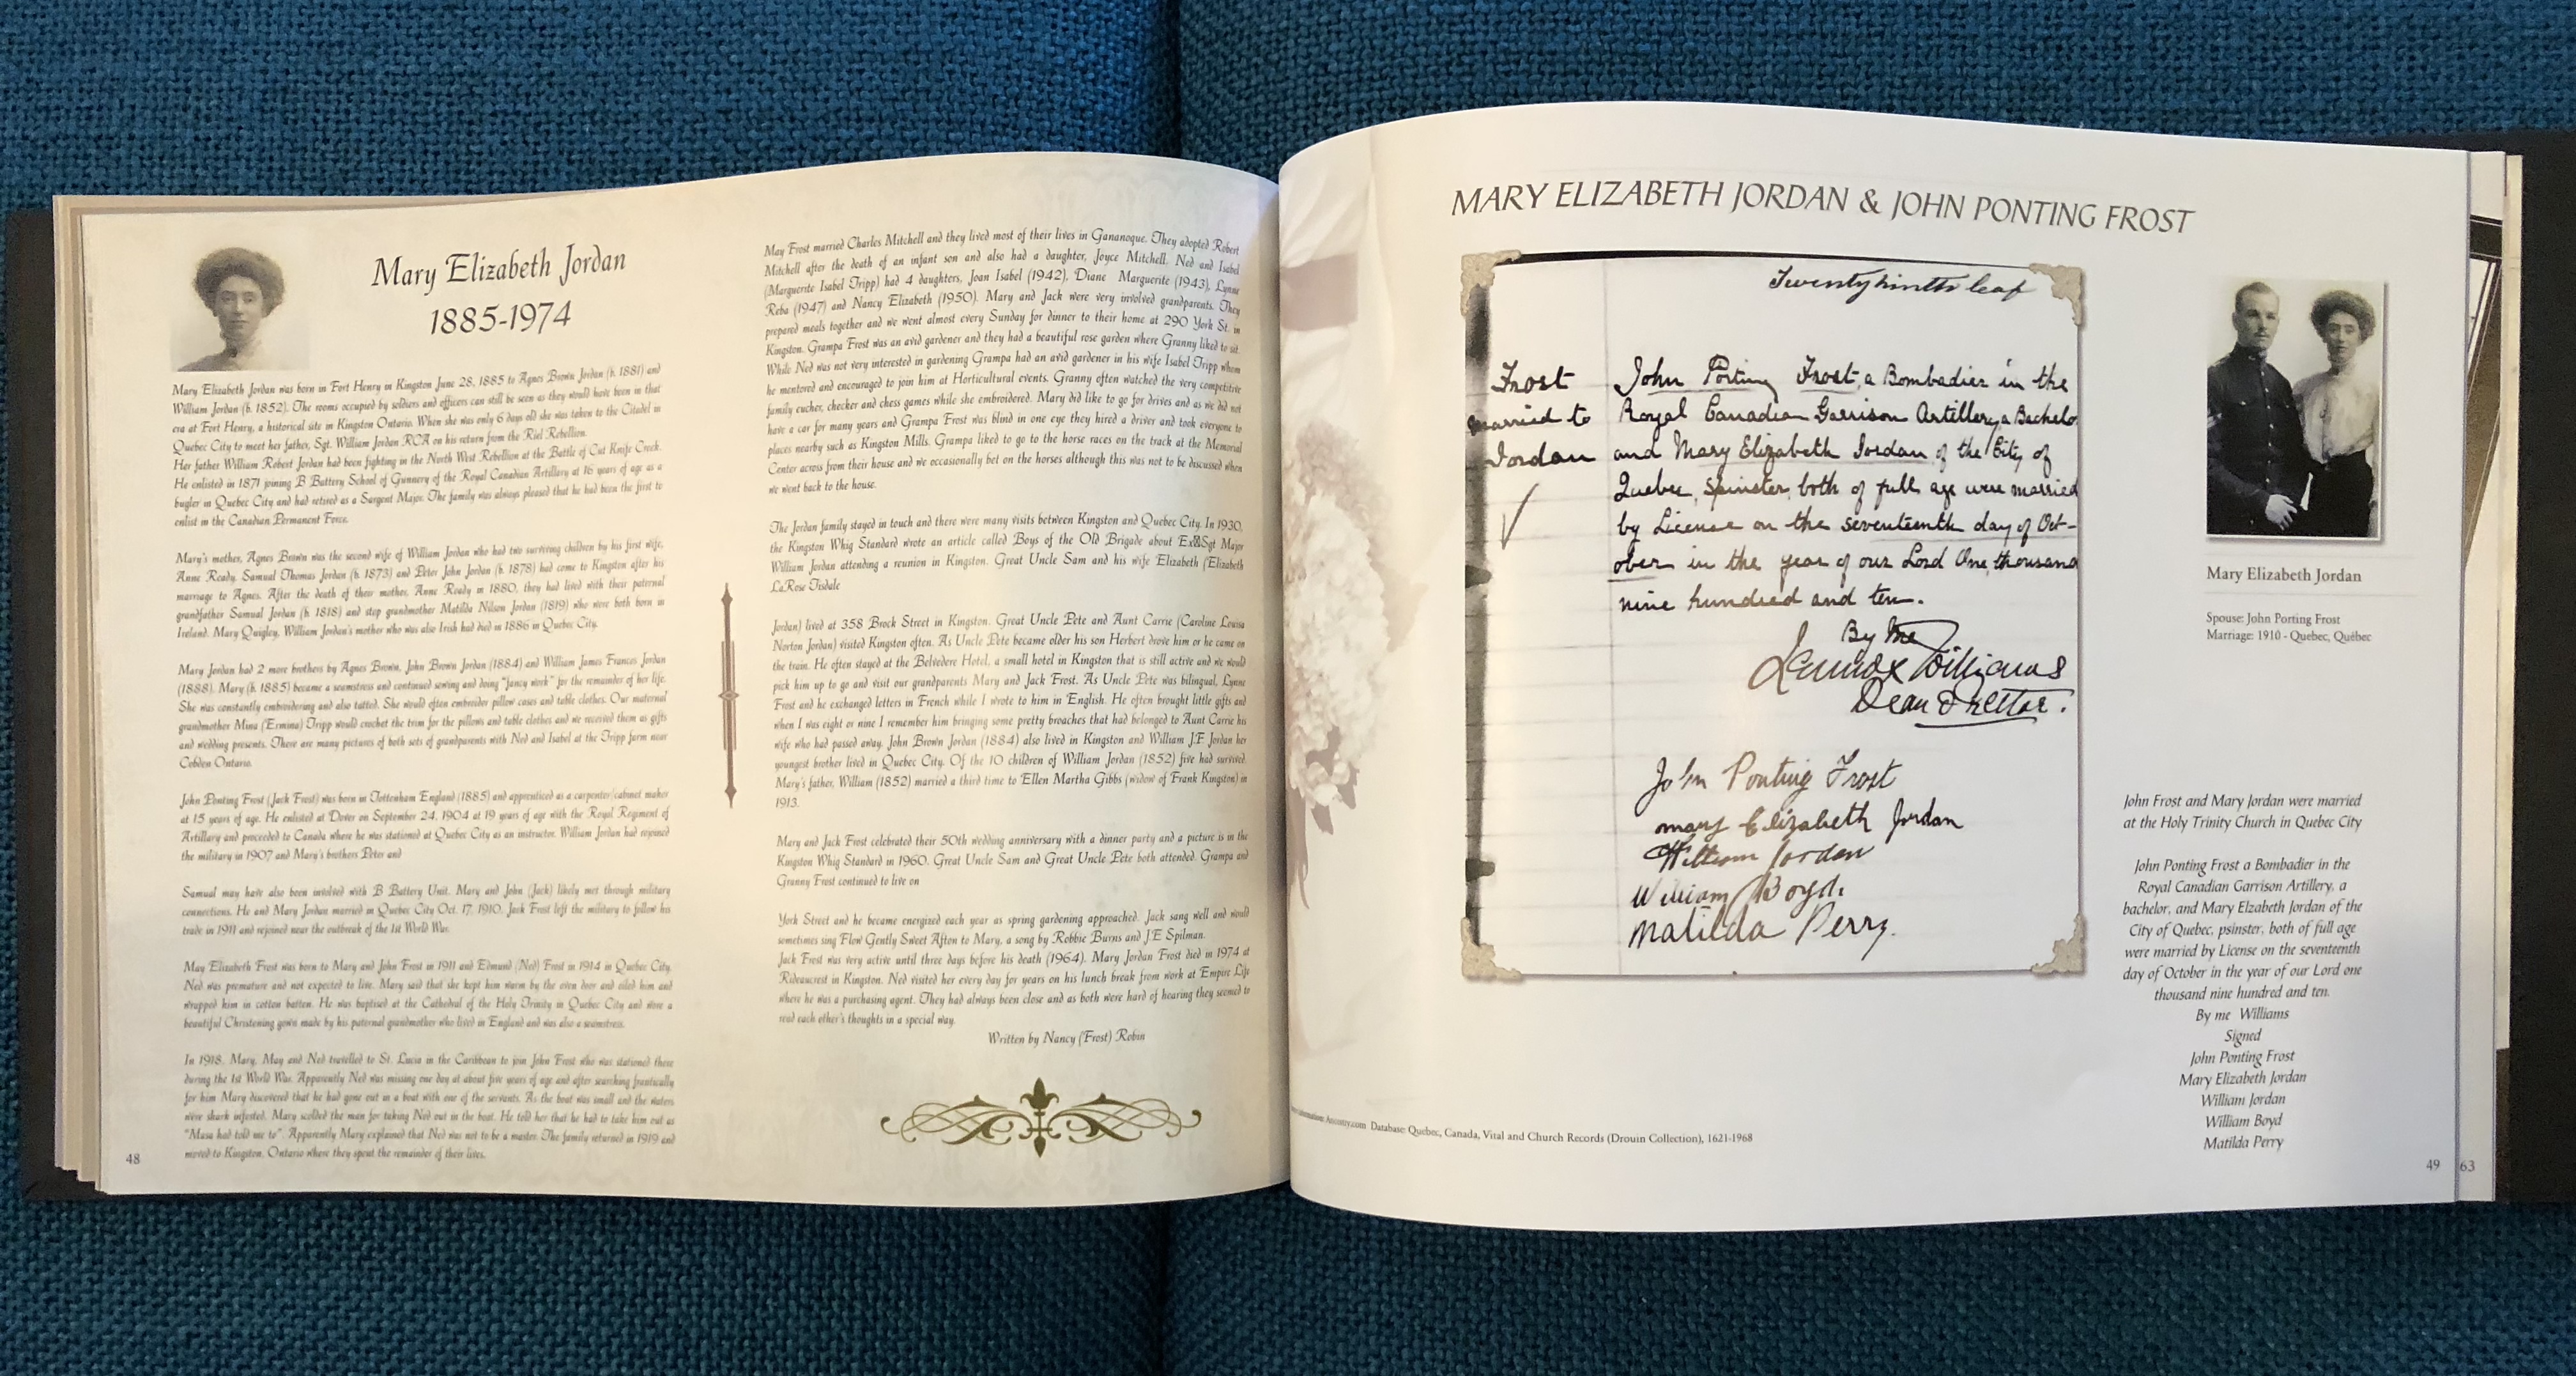 Mary Elizabeth Jordan
1885-1974
Mary Elizabeth Jordan was born in Fort Henry in Kingston June 28, 1885 to Agnes Brown Jordan (b. 1881) and
William Jordan (b. 1852). The rooms occupied by soldiers and officers can still be seen as they would have been in that
era at Fort Henry, a historical site in Kingston Ontario. When she was only 6 days old she was taken to the Citadel in
Quebec City to meet her father, Sgt. William Jordan RCA on his return from the Riel Rebellion.
Her father William Robert Jordan had been fighting in the North West Rebellion at the Battle of Cut Knife Creek.
He enlisted in 1871 joining B Battery School of Gunnery of the Royal Canadian Artillery at 16 years of age as a
bugler in Quebec City and had retired as a Sargent Major. The family was always pleased that he had been the first to
enlist in the Canadian Permanent Force.
Mary's mother, Agnes Brown was the second wife of William Jordan who had two surviving children by his first wife,
Anne Ready. Samuel Thomas Jordan (b. 1873) and Peter John Jordan (b. 1878) had come to Kingston after his
marriage to Agnes. After the death of their mother, Anne Ready in 1880, they had lived with their paternal
grandfather Samuel Jordan (b. 1818) and step grandmother Matilda Nilson Jordan (1819) who were both born in
Ireland. Mary Quigley, William Jordan's mother who was also Irish had died in 1886 in Quebec City.
Mary Jordan had 2 more brothers by Agnes Brown, John Brown Jordan (1884) and William James Frances Jordan
(1888). Mary (b. 1885) became a seamstress and continued sewing and doing "fancy work" for the remainder of her life.
She was constantly embroidering and also tatted. She would often embroider pillow cases and table clothes. Our maternal
grandmother Mina (Ermina) Tripp would crochet the trim for the pillows and table clothes and we received them as gifts
and wedding presents. There are many pictures of both sets of grandparents with Ned and Isabel at the Tripp farm near
Cobden Ontario.
John Ponting Frost (Jack Frost) was born in Tottenham England (1885) and apprenticed as a carpenter/cabinet maker
at 15 years of age. He enlisted at Dover on September 24, 1904 at 19 years of age with the Royal Regiment of
Artillery and proceeded to Canada where he was stationed at Quebec City as an instructor. William Jordan had rejoined
the military in 1907 and Mary's brothers Peter and
Samual may have also been involved with B Battery Unit. Mary and John (Jack) likely met through military
connections. He and Mary Jordan married in Quebec City Oct. 17, 1910. Jack Frost left the military to follow his
trade in 1911 and rejoined near the outbreak of the 1st World War.
May Elizabeth Frost was born to Mary and John Frost in 1911 and Edmund (Ned) Frost in 1914 in Quebec City.
Ned was premature and not expected to live. Mary said that she kept him warm by the oven door and oiled him and
wrapped him in cotton batten. He was baptised at the Cathedral of the Holy Trinity in Quebec City and wore a
beautiful Christening gown made by his paternal grandmother who lived in England and was also a seamstress.
In 1918, Mary, May and Ned travelled to St. Lucia in the Caribbean to join John Frost who was stationed there
during the 1st World War. Apparently Ned was missing one day at about five years of age and after searching frantically
for him Mary discovered that he had gone out in a boat with one of the servants. As the boat was small and the waters
were shark infested, Mary scolded the man for taking Ned out in the boat. He told her that he had to take him out as
"Masa had told me to". Apparently Mary explained that Ned was not to be a master. The family returned in 1919 and
moved to Kingston, Ontario where they spent the remainder of their lives.
48
May Frost married Charles Mitchell and they lived most of their lives in Gananoque. They adopted Robert
Mitchell after the death of an infant son and also had a daughter, Joyce Mitchell. Ned and Isabel
(Marguerite Isabel Tripp) had 4 daughters, Joan Isabel (1942), Diane Marguerite (1943), Lynne
Reba (1947) and Nancy Elizabeth (1950). Mary and Jack were very involved grandparents. They
prepared meals together and we went almost every Sunday for dinner to their home at 290 York St. in
Kingston. Grampa Frost was an avid gardener and they had a beautiful rose garden where Granny liked to sit.
While Ned was not very interested in gardening Grampa had an avid gardener in his wife Isabel Tripp whom
he mentored and encouraged to join him at Horticultural events. Granny often watched the very competitive
family eucher, checker and chess games while she embroidered. Mary did like to go for drives and as we did not
have a car for many years and Grampa Frost was blind in one eye they hired a driver and took everyone to
places nearby such as Kingston Mills. Grampa liked to go to the horse races on the track at the Memorial
Center across from their house and we occasionally bet on the horses although this was not to be discussed when
we went back to the house.
The Jordan family stayed in touch and there were many visits between Kingston and Quebec City. In 1930,
the Kingston Whig Standard wrote an article called Boys of the Old Brigade about Ex&Sgt Major
William Jordan attending a reunion in Kingston. Great Uncle Sam and his wife Elizabeth (Elizabeth
LaRose Tisdale
Jordan) lived at 358 Brock Street in Kingston. Great Uncle Pete and Aunt Carrie (Caroline Louisa
Norton Jordan) visited Kingston often. As Uncle Pete became older his son Herbert drove him or he came on
the train. He often stayed at the Belvedere Hotel, a small hotel in Kingston that is still active and we would
pick him up to go and visit our grandparents Mary and Jack Frost. As Uncle Pete was bilingual, Lynne
Frost and he exchanged letters in French while I wrote to him in English. He often brought little gifts and
when I was eight or nine I remember him bringing some pretty broaches that had belonged to Aunt Carrie his
wife who had passed away. John Brown Jordan (1884) also lived in Kingston and William J.F Jordan her
youngest brother lived in Quebec City. Of the 10 children of William Jordan (1852) five had survived.
Mary's father, William (1852) married a third time to Ellen Martha Gibbs (widow of Frank Kingston) in
1913.
Mary and Jack Frost celebrated their 50th wedding anniversary with a dinner party and a picture is in the
Kingston Whig Standard in 1960. Great Uncle Sam and Great Uncle Pete both attended. Grampa and
Granny Frost continued to live on
York Street and he became energized each year as spring gardening approached. Jack sang well and would
sometimes sing Flow Gently Sweet Afton to Mary, a song by Robbie Burns and J.E Spilman.
Jack Frost was very active until three days before his death (1964). Mary Jordan Frost died in 1974 at
Rideaucrest in Kingston. Ned visited her every day for years on his lunch break from work at Empire Life
where he was a purchasing agent. They had always been close and as both were hard of hearing they seemed to
read each other's thoughts in a special way.
Written by Nancy (Frost) Robin
MARY ELIZABETH JORDAN & JOHN PONTING FROST
Twenty ninth leaf
Frost
married to
Jordan
John Ponting Frost, a Bombadier in the
Royal Canadian Garrison Artillery, a Bachelo
and Mary Elizabeth Jordan of the City of
Quebec, Spinster, both of full age were married
by License on the seventeenth day of Oct-
ober in the year of our Lord One thousand
nine hundred and ten.
By Me
Lennox Williams
Dean & Rector.
John Ponting Frost
mary Elizabeth Jordan
William Jordan
William Boyd.
Matilda Perry.
Mary Elizabeth Jordan
Spouse: John Porting Frost
Marriage: 1910 - Quebec, Québec
John Frost and Mary Jordan were married
at the Holy Trinity Church in Quebec City
John Ponting Frost a Bombadier in the
Royal Canadian Garrison Artillery, a
bachelor, and Mary Elzabeth Jordan of the
City of Quebec, psinster, both of full age
were married by License on the seventeenth
day of October in the year of our Lord one
thousand nine hundred and ten.
By me Williams
Signed
John Ponting Frost
Mary Elizabeth Jordan
William Jordan
William Boyd
Matilda Perry
Ancestry.com Database: Quebec, Canada, Vital and Church Records (Drouin Collection), 1621-1968
49
63